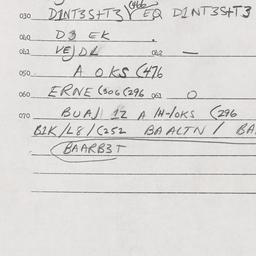 030 D1NT3S+T3 (466 EQ D1NT3S+T3
040 D3 EK.
041 VEJDL 042 —
050 A OKS (476
060 ERNE (306 (296 061 O
070 BUAJ 12 A /H-/OKS (296
B1K/L8/(252 BAALTN / BA
BAARB3T